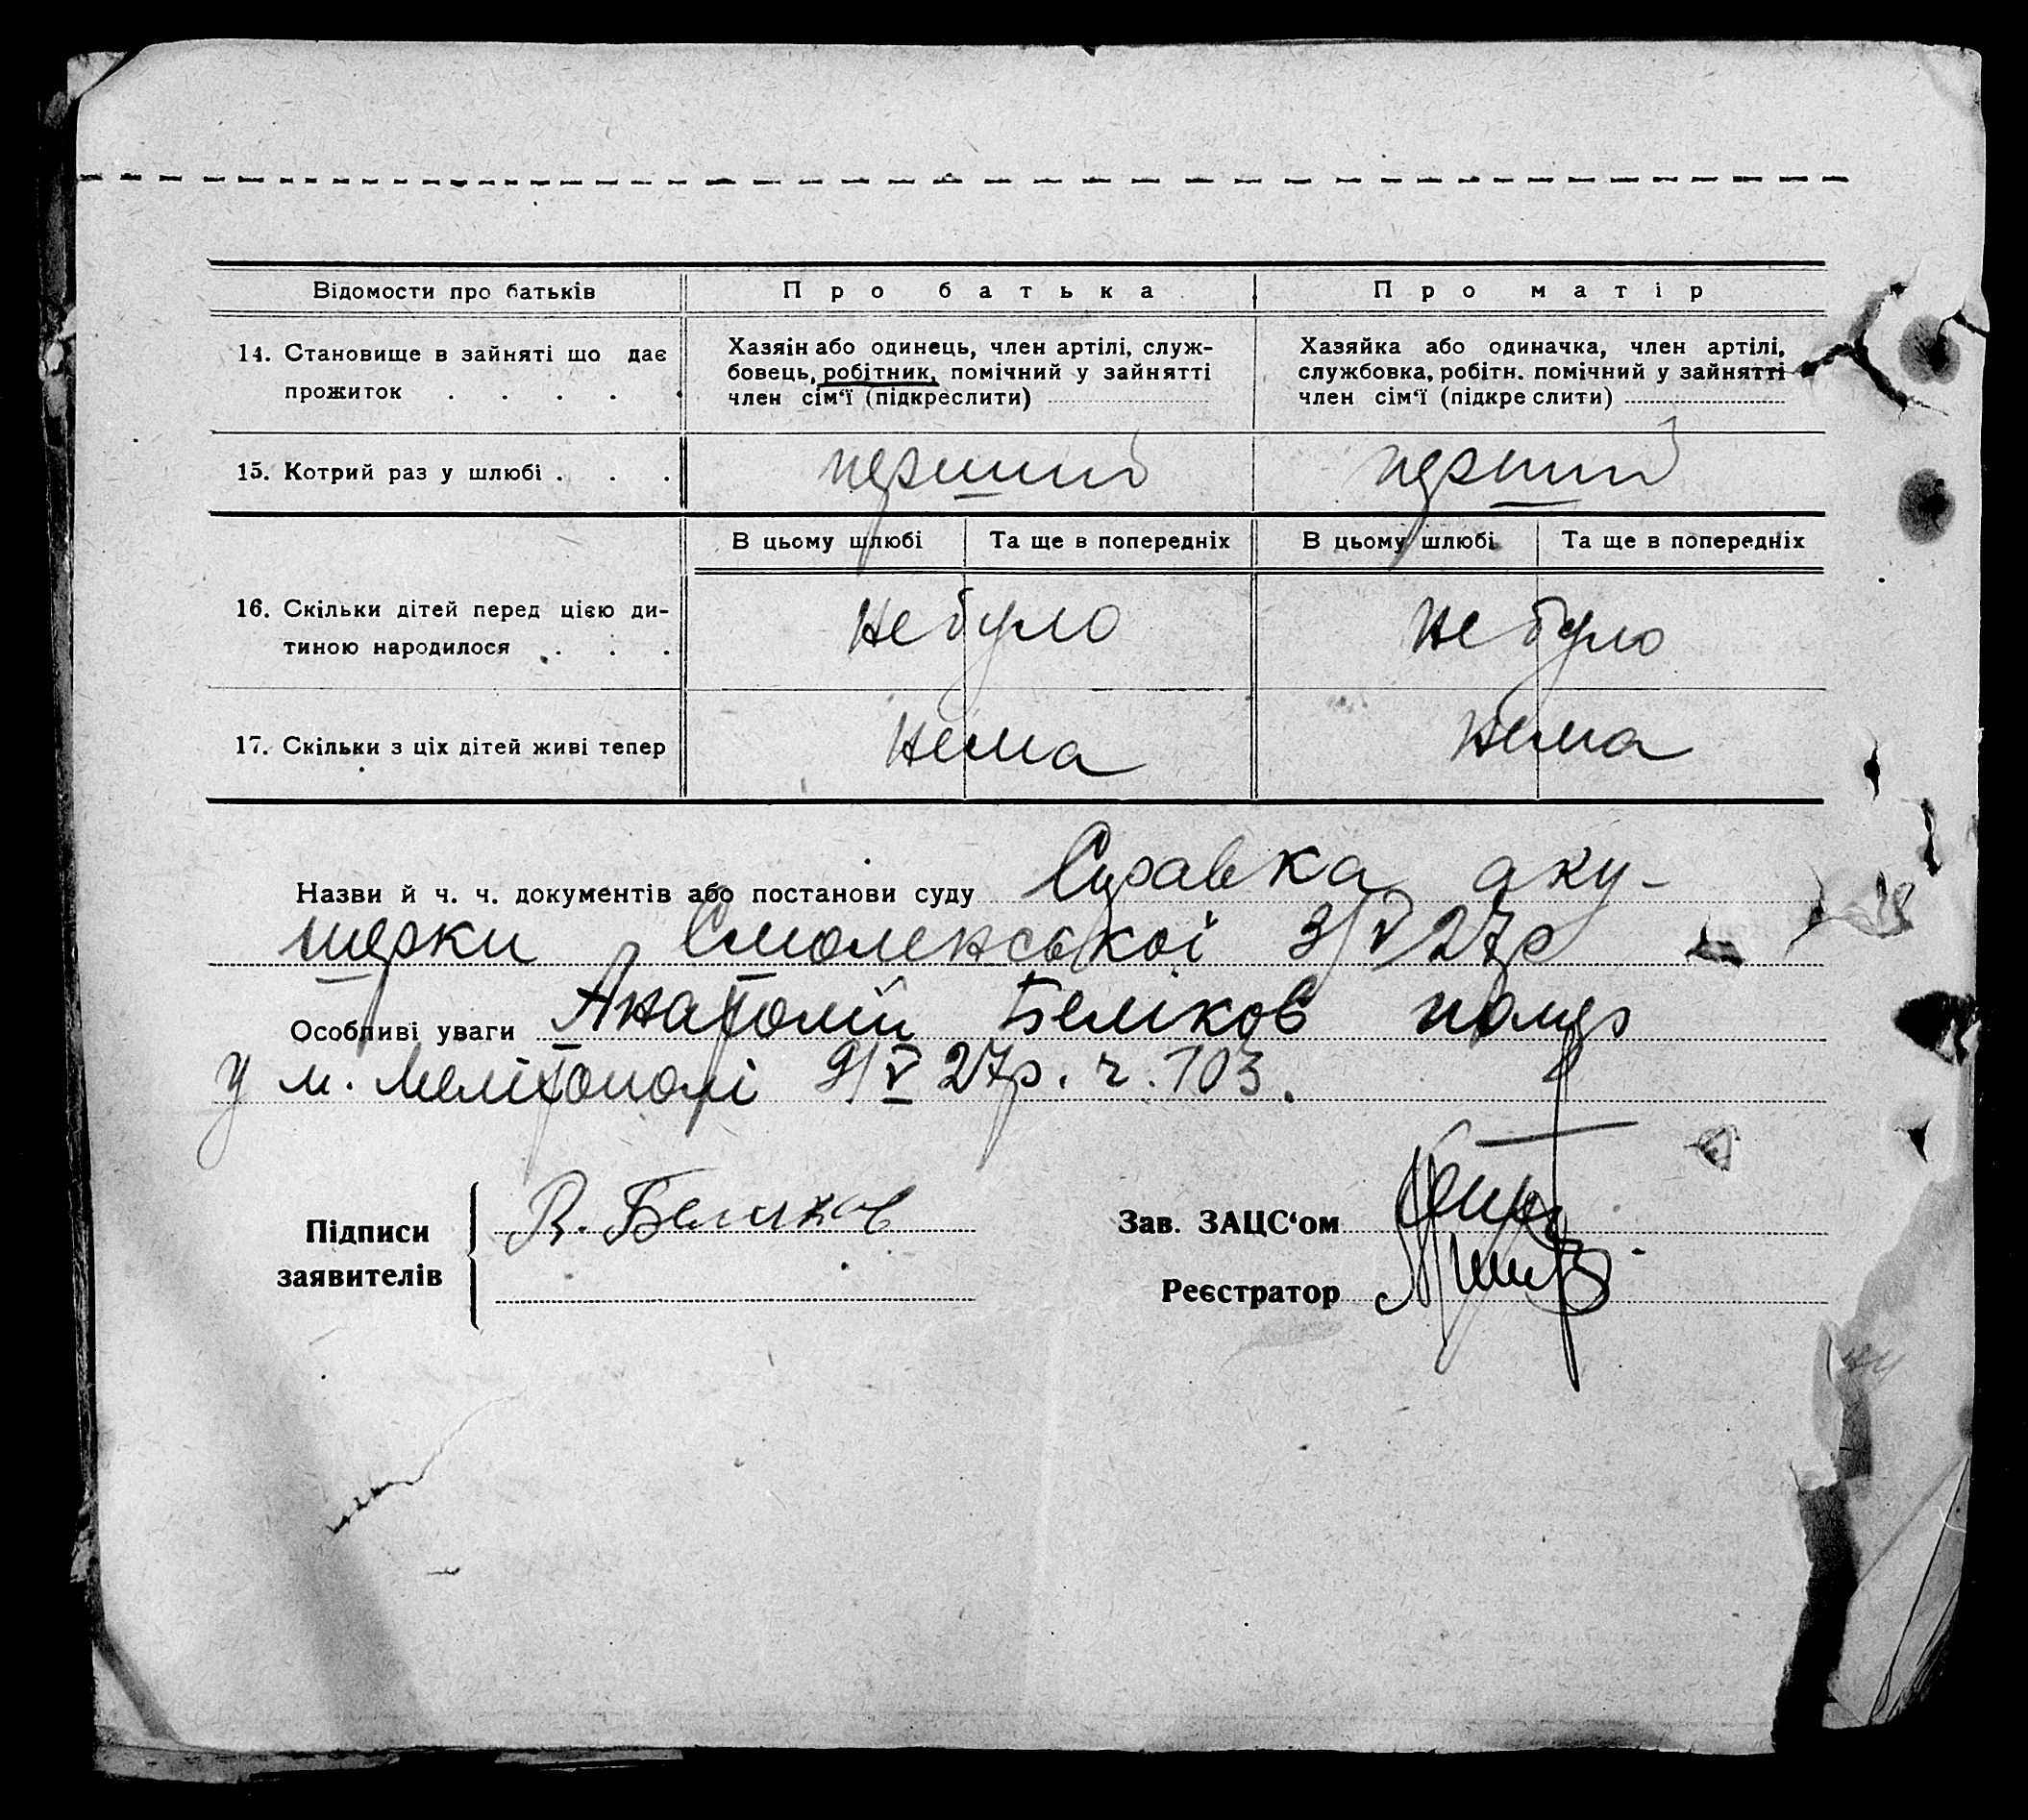 Відомости про батьків
Про батька
Про матір
14. Становище в зайняті що дає
прожиток . . . . .
Хазяїн або одинець, член артілі, служ-
бовець, робітник, помічний у зайнятті
член сім‘ї (підкреслити)
Хазяйка або одиначка, член артілі,
службовка, робітн. помічний у зайнятті
член сім‘ї (підкреслити)
15. Котрий раз у шлюбі . . .
перший
перший
В цьому шлюбі
Та ще в попередніх
В цьому шлюбі
Та ще в попередніх
16. Скільки дітей перед цією ди-
тиною народилося . . .
Не було
Не було
17. Скільки з ціх дітей живі тепер
Нема
Нема
Назви й ч. ч. документів або постанови суду Справка аку-
шерки Смоленської 3/V 27р
Особливі уваги Анатолій Беліков помер
у м. Мелітополі 9/V 27р. ч. 103.
Підписи
заявителів
В. Беликов
Зав. ЗАЦС‘ом
Реєстратор